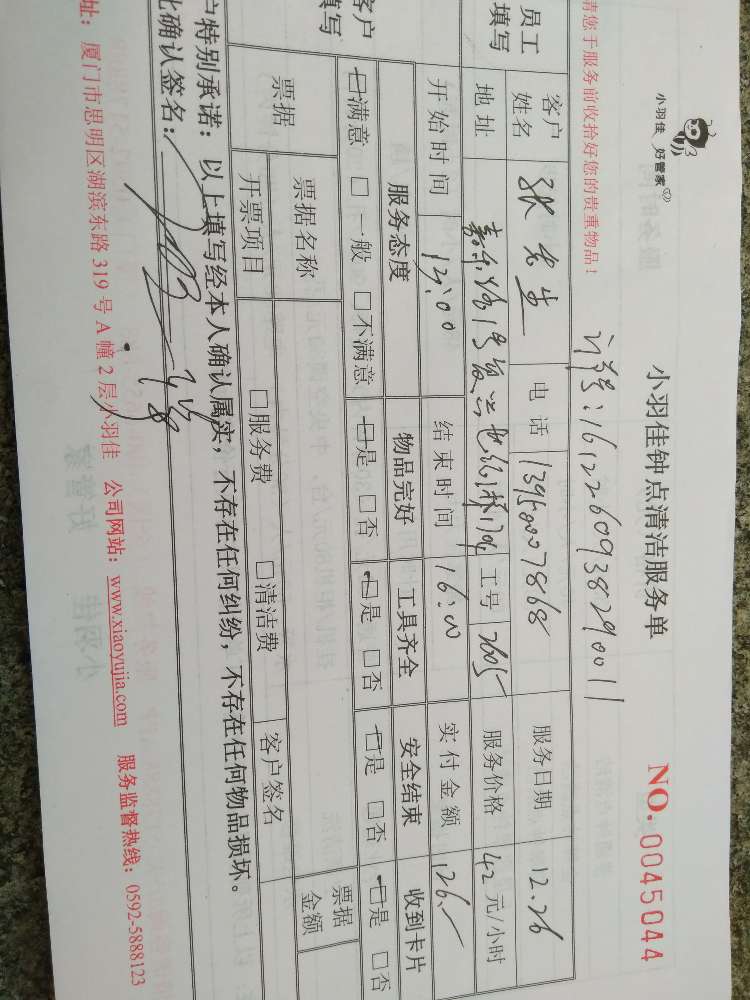 小羽佳 好管家
小羽佳钟点清洁服务单
NO. 0045044
请您于服务前收拾好您的贵重物品！
订单号：1612260938290011
员工填写 客户姓名 张先生 电话 13950007868 服务日期 12.26
地址 工号 2605 服务价格 42元/小时
开始时间 13:00 结束时间 16:00 实付金额 126.-
客户填写 服务态度 物品完好 工具齐全 安全结束 收到卡片
□满意 □一般 □不满意 □是 □否 □是 □否 □是 □否 □是 □否
票据 票据名称 客户签名 票据金额
开票项目 □服务费 □清洁费
户特别承诺：以上填写经本人确认属实，不存在任何纠纷，不存在任何物品损坏。
此确认签名：
址：厦门市思明区湖滨东路 319 号 A 幢 2 层小羽佳 公司网站：www.xiaoyujia.com 服务监督热线：0592-5888123